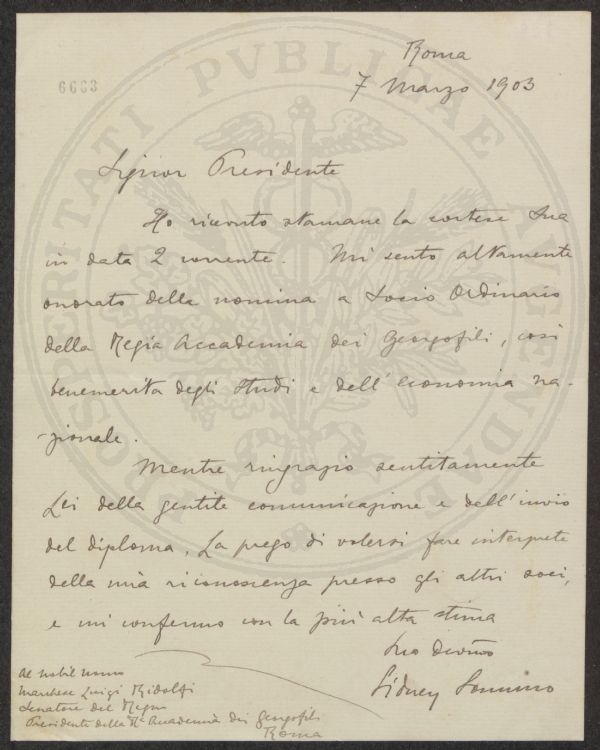 Roma
7 Marzo 1903
6663
PROSPERITATI PVBLICAE AVGENDAE
Signor Presidente
Ho ricevuto stamane la cortese Sua
in data 2 corrente. Mi sento altamente
onorato della nomina a Socio Ordinario
della Regia Accademia dei Georgofili, così
benemerita degli studi e dell'economia na-
zionale.
Mentre ringrazio sentitamente
Lei della gentile comunicazione e dell'invio
del diploma, La prego di volersi fare interprete
della mia riconoscenza presso gli altri soci,
e mi confermo con la più alta stima
Suo devmo
Sidney Sonnino
Al nobil uomo
Marchese Luigi Ridolfi
Senatore del Regno
Presidente della Rª Accademia dei Georgofili
Roma